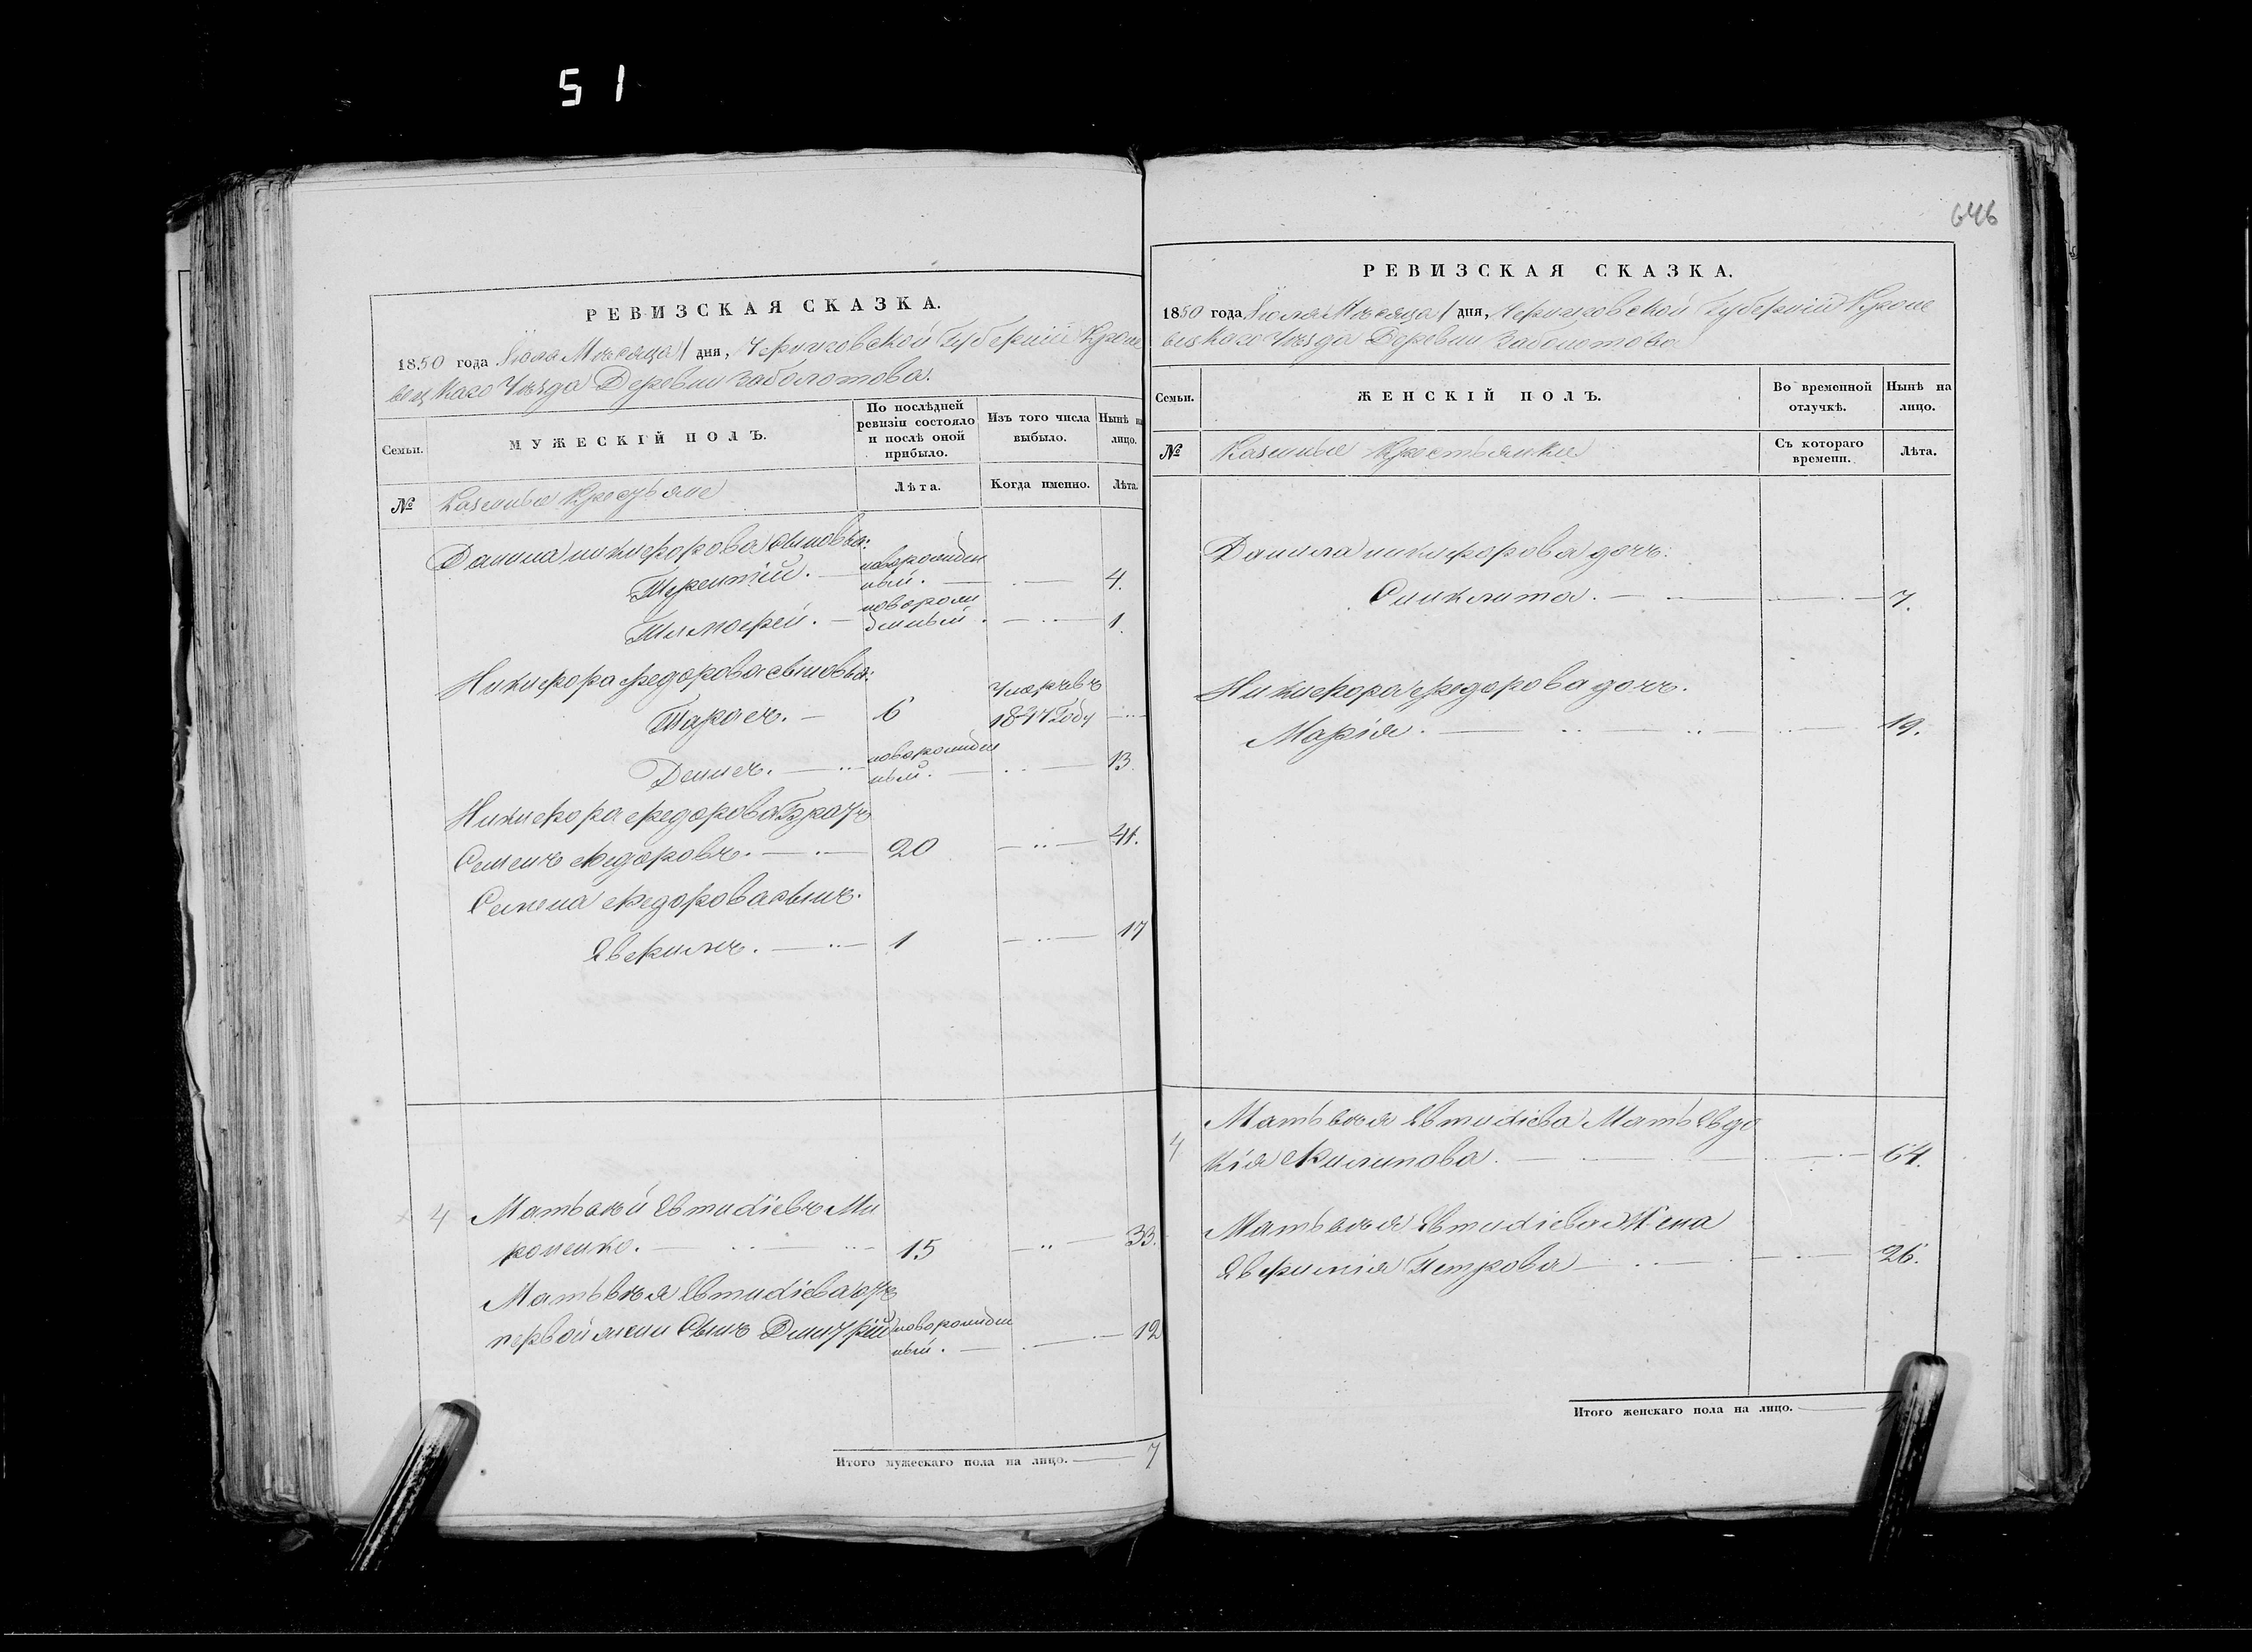 51
646
РЕВИЗСКАЯ СКАЗКА.
1850 года Іюля Мѣсяца 1 дня, Черниговской Губерніи Кроле
вецкаго Уѣзда Деревни Заболотова.
Семьи.
МУЖЕСКІЙ ПОЛЪ.
По послѣдней ревизіи состояло и послѣ оной прибыло.
Изъ того числа выбыло.
Нынѣ на лицо.
№
Казенные Крестьяне
Лѣта.
Когда именно.
Лѣта.
Данила Никифорова сыновья:
Терентій. новорожден
ный. 4.
Тимофей. новорож
денный. 1.
Никифора Федорова сыновья:
Тарасъ. 6 Умеръ въ
1847 Году
Денисъ. новорожден
ный. 13.
Никифора Федорова Братъ
Семенъ Федоровъ. 20 41.
Семена Федорова сынъ.
Евфимъ. 1 17
4 Матьвѣй Евтихіевъ Ми
роненко. 15 33.
Матьвѣя Евтихіева отъ
первой жены Сынъ Дмитрій новорожден
ный. 12
Итого мужескаго пола на лицо. 7
РЕВИЗСКАЯ СКАЗКА.
1850 года Іюля Мѣсяца 1 дня, Черниговской Губерніи Кроле
вецкаго Уѣзда Деревни Заболотова
Семьи.
ЖЕНСКІЙ ПОЛЪ.
Во временной отлучкѣ.
Нынѣ на лицо.
№
Казенные Крестьянки
Съ котораго времени.
Лѣта.
Данила Никифорова дочь:
Синклита. 7.
Никифора Федорова дочь.
Марія. 19.
4 Матьвѣя Евтихіева Мать Евдо
кія Филипова. 64.
Матьвѣя Евтихіева Жена
Евфимія Петрова 26.
Итого женскаго пола на лицо.